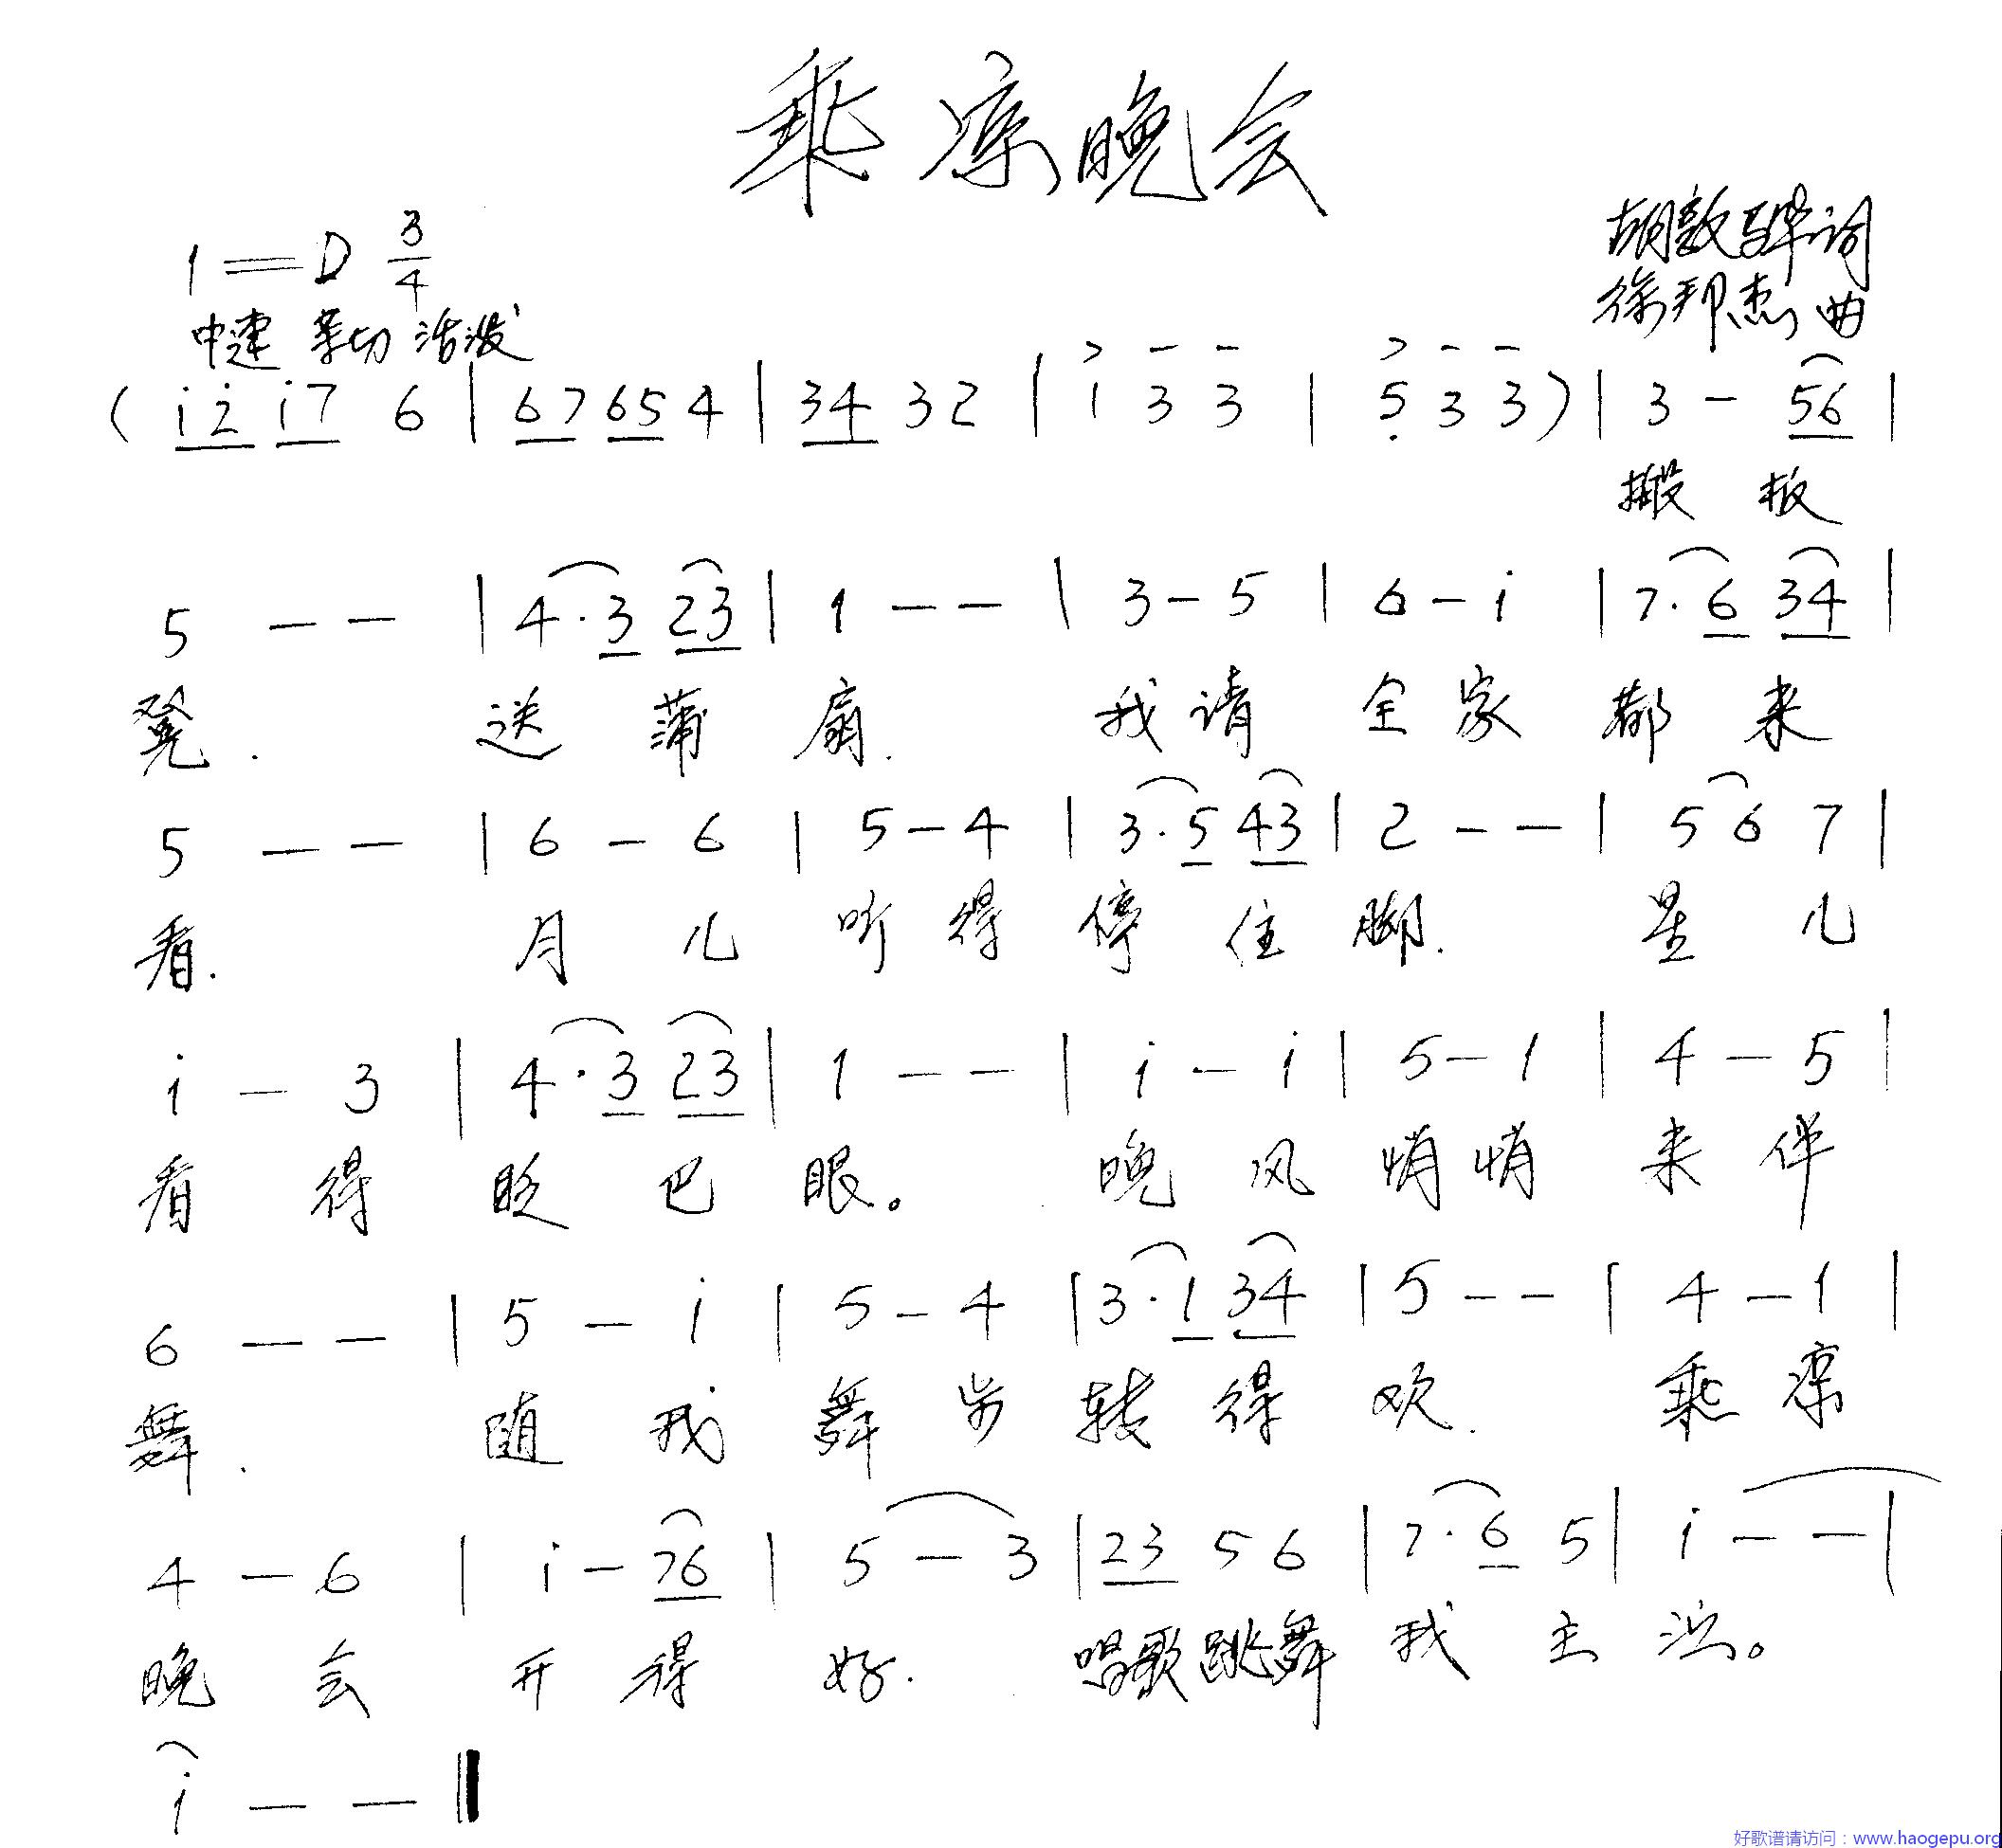 乘凉晚会
胡敦骅词
1=D 3/4
徐邦杰曲
中速 亲切 活泼
( i̇ 2̇ i̇ 7 6 | 6 7 6 5 4 | 3 4 3 2 | i 3 3 | 5̣ 3 3 ) | 3 - 5 6 |
搬 板
5 - - | 4 · 3 2 3 | 1 - - | 3 - 5 | 6 - i | 7 · 6 3 4 |
凳. 送 蒲 扇. 我 请 全 家 都 来
5 - - | 6 - 6 | 5 - 4 | 3 · 5 4 3 | 2 - - | 5 6 7 |
看. 月 儿 听 得 停 住 脚. 星 儿
i - 3 | 4 · 3 2 3 | 1 - - | i - i | 5 - 1 | 4 - 5 |
看 得 眨 巴 眼。 晚 风 悄 悄 来 伴
6 - - | 5 - i | 5 - 4 | 3 · 1 3 4 | 5 - - | 4 - 1 |
舞. 随 我 舞 步 转 得 欢. 乘 凉
4 - 6 | i - 7 6 | 5 - 3 | 2 3 5 6 | 7 · 6 5 | i - - |
晚 会 开 得 好. 唱歌跳舞 我 主 演。
i - - ‖
好歌谱请访问：www.haogepu.org